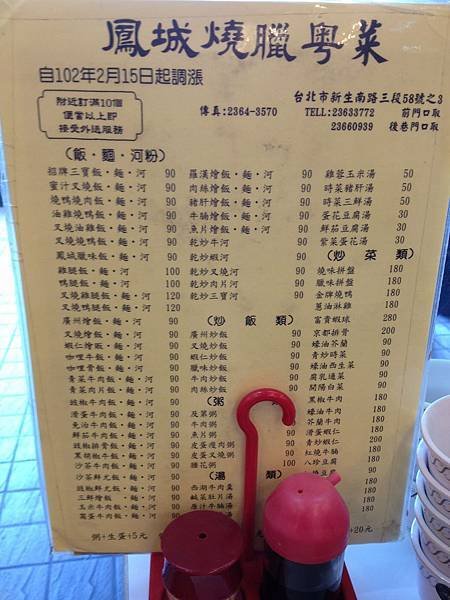 鳳城燒臘粵菜
自102年2月15日起調漲
附近訂滿10個
便當以上即
接受外送服務
台北市新生南路三段58號之3
傳真：2364-3570
TELL:23633772 前門口取
23660939 後巷門口取
(飯・麵・河粉)
招牌三寶飯・麵・河 90
蜜汁叉燒飯・麵・河 90
燒鴨燒肉飯・麵・河 90
油雞燒鴨飯・麵・河 90
叉燒油雞飯・麵・河 90
叉燒燒鴨飯・麵・河 90
鳳城臘味飯・麵・河 90
雞腿飯・麵・河 100
鴨腿飯・麵・河 100
叉燒雞腿飯・麵・河 120
叉燒鴨腿飯・麵・河 120
廣州燴飯・麵・河 90
叉燒燴飯・麵・河 90
蝦仁燴飯・麵・河 90
咖哩牛飯・麵・河 90
咖哩雞飯・麵・河 90
青菜牛肉飯・麵・河 90
青菜肉片飯・麵・河 90
豉椒牛肉飯・麵・河 90
滑蛋牛肉飯・麵・河 90
魚油牛肉飯・麵・河 90
鮮茄牛肉飯・麵・河 90
豉椒排骨飯・麵・河 90
黑胡椒牛飯・麵・河 90
沙茶牛肉飯・麵・河 90
沙茶鮮尤飯・麵・河 90
豉椒鮮尤飯・麵・河 90
三鮮燴飯・麵・河 90
玉米牛肉飯・麵・河 90
窩蛋牛肉飯・麵・河 90
粥+生蛋+5元
羅漢燴飯・麵・河 90
肉絲燴飯・麵・河 90
豬肝燴飯・麵・河 90
牛腩燴飯・麵・河 90
魚片燴飯・麵・河 90
乾炒牛河 90
乾炒蝦河 90
乾炒叉燒河 90
乾炒肉片河 90
乾炒三寶河 90
(炒飯類)
廣州炒飯 90
叉燒炒飯 90
蝦仁炒飯 90
臘味炒飯 90
牛肉炒飯 90
肉絲炒飯 90
(粥
及第粥
牛肉粥
魚片粥
皮蛋瘦肉粥
皮蛋叉燒粥
腰花粥 100
(湯 類
西湖牛肉羹
鹹菜肚片湯
原汁牛腩湯
雞蓉玉米湯 50
時菜豬肝湯 50
時菜三鮮湯 50
蛋花豆腐湯 30
鮮茄豆腐湯 30
紫菜蛋花湯 30
(炒菜類)
燒味拼盤 180
臘味拼盤 180
金牌燒鴨 180
蔥油淋雞 180
富貴蝦球 280
京都排骨 200
蠔油芥蘭 90
青炒時菜 90
蠔油西生菜 90
腐乳通菜 90
開陽白菜 90
黑椒牛肉 180
蠔油牛肉 180
芥蘭牛肉 180
滑蛋蝦仁 180
青炒蝦仁 200
紅燒牛腩 180
八珍豆腐 180
+20元